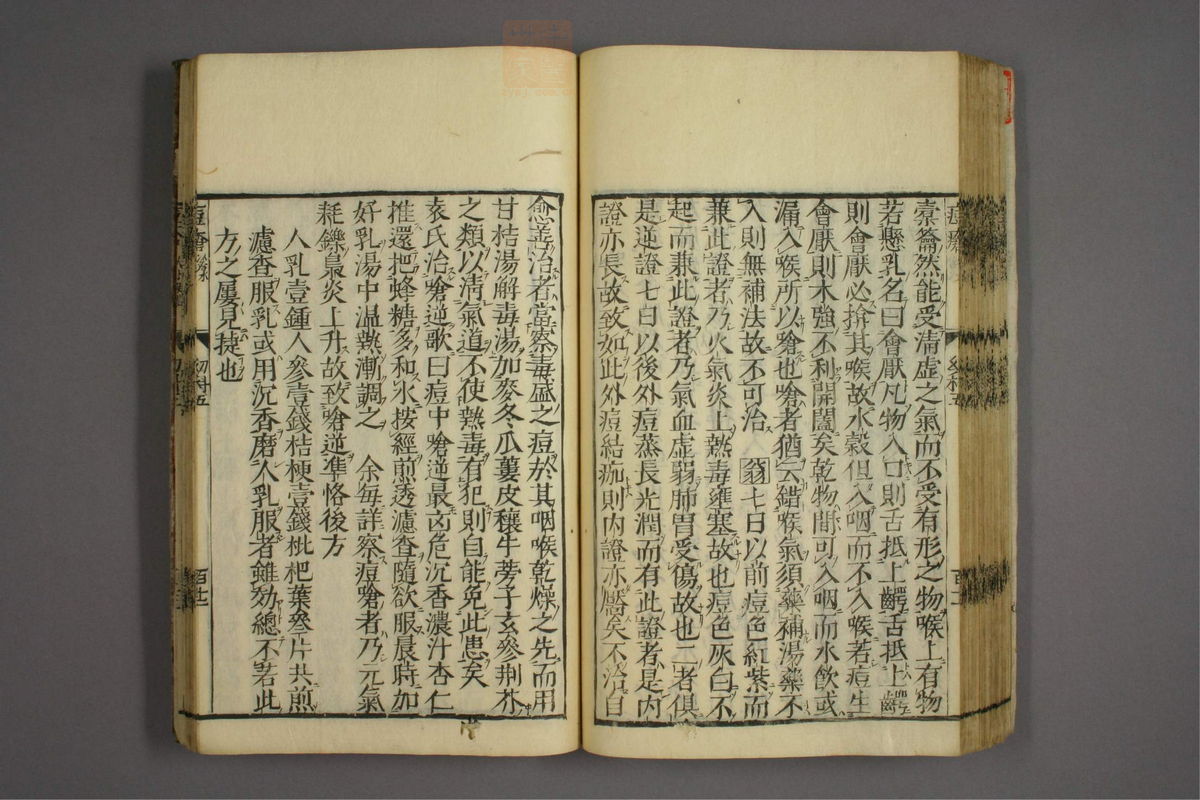 橐籥然能受清虛之氣而不受有形之物喉上有物
若懸乳名曰會厭凡物入口則舌抵上齶舌抵上齶
則會厭必揜其喉故水穀但入咽而不入喉若痘生
會厭則木強不利開闔矣乾物間可入咽而水飲或
漏入喉所以嗆也嗆者猶云錯喉氣須藥補湯藥不
入則無補法故不可治 翁七日以前痘色紅紫而
兼此證者乃火氣炎上熱毒壅塞故也痘色灰白不
起而兼此證者乃氣血虛弱肺胃受傷故也二者俱
是逆證七日以後外痘蒸長光潤而有此證者是內
證亦長故致如此外痘結痂則內證亦愿矣不治自
愈善治者當察毒盛之痘於其咽喉乾燥之先而用
甘桔湯解毒湯加麥冬瓜蔞皮穰牛蒡子玄參荆芥
之類以清氣道不使熱毒有犯則自能免此患矣
袁氏治嗆逆歌曰痘中嗆逆最凶危沉香濃汁杏仁
推還把蜂糖多和水按經煎透濾查隨欲服晨時加
好乳湯中温熱漸調之 余每詳察痘嗆者乃元氣
耗鑠梟炎上升故致嗆逆準恪後方
人乳壹鍾人參壹錢桔梗壹錢枇杷葉叄片共煎
濾查服乳或用沉香磨人乳服者雖効總不若此
方之屢見捷也